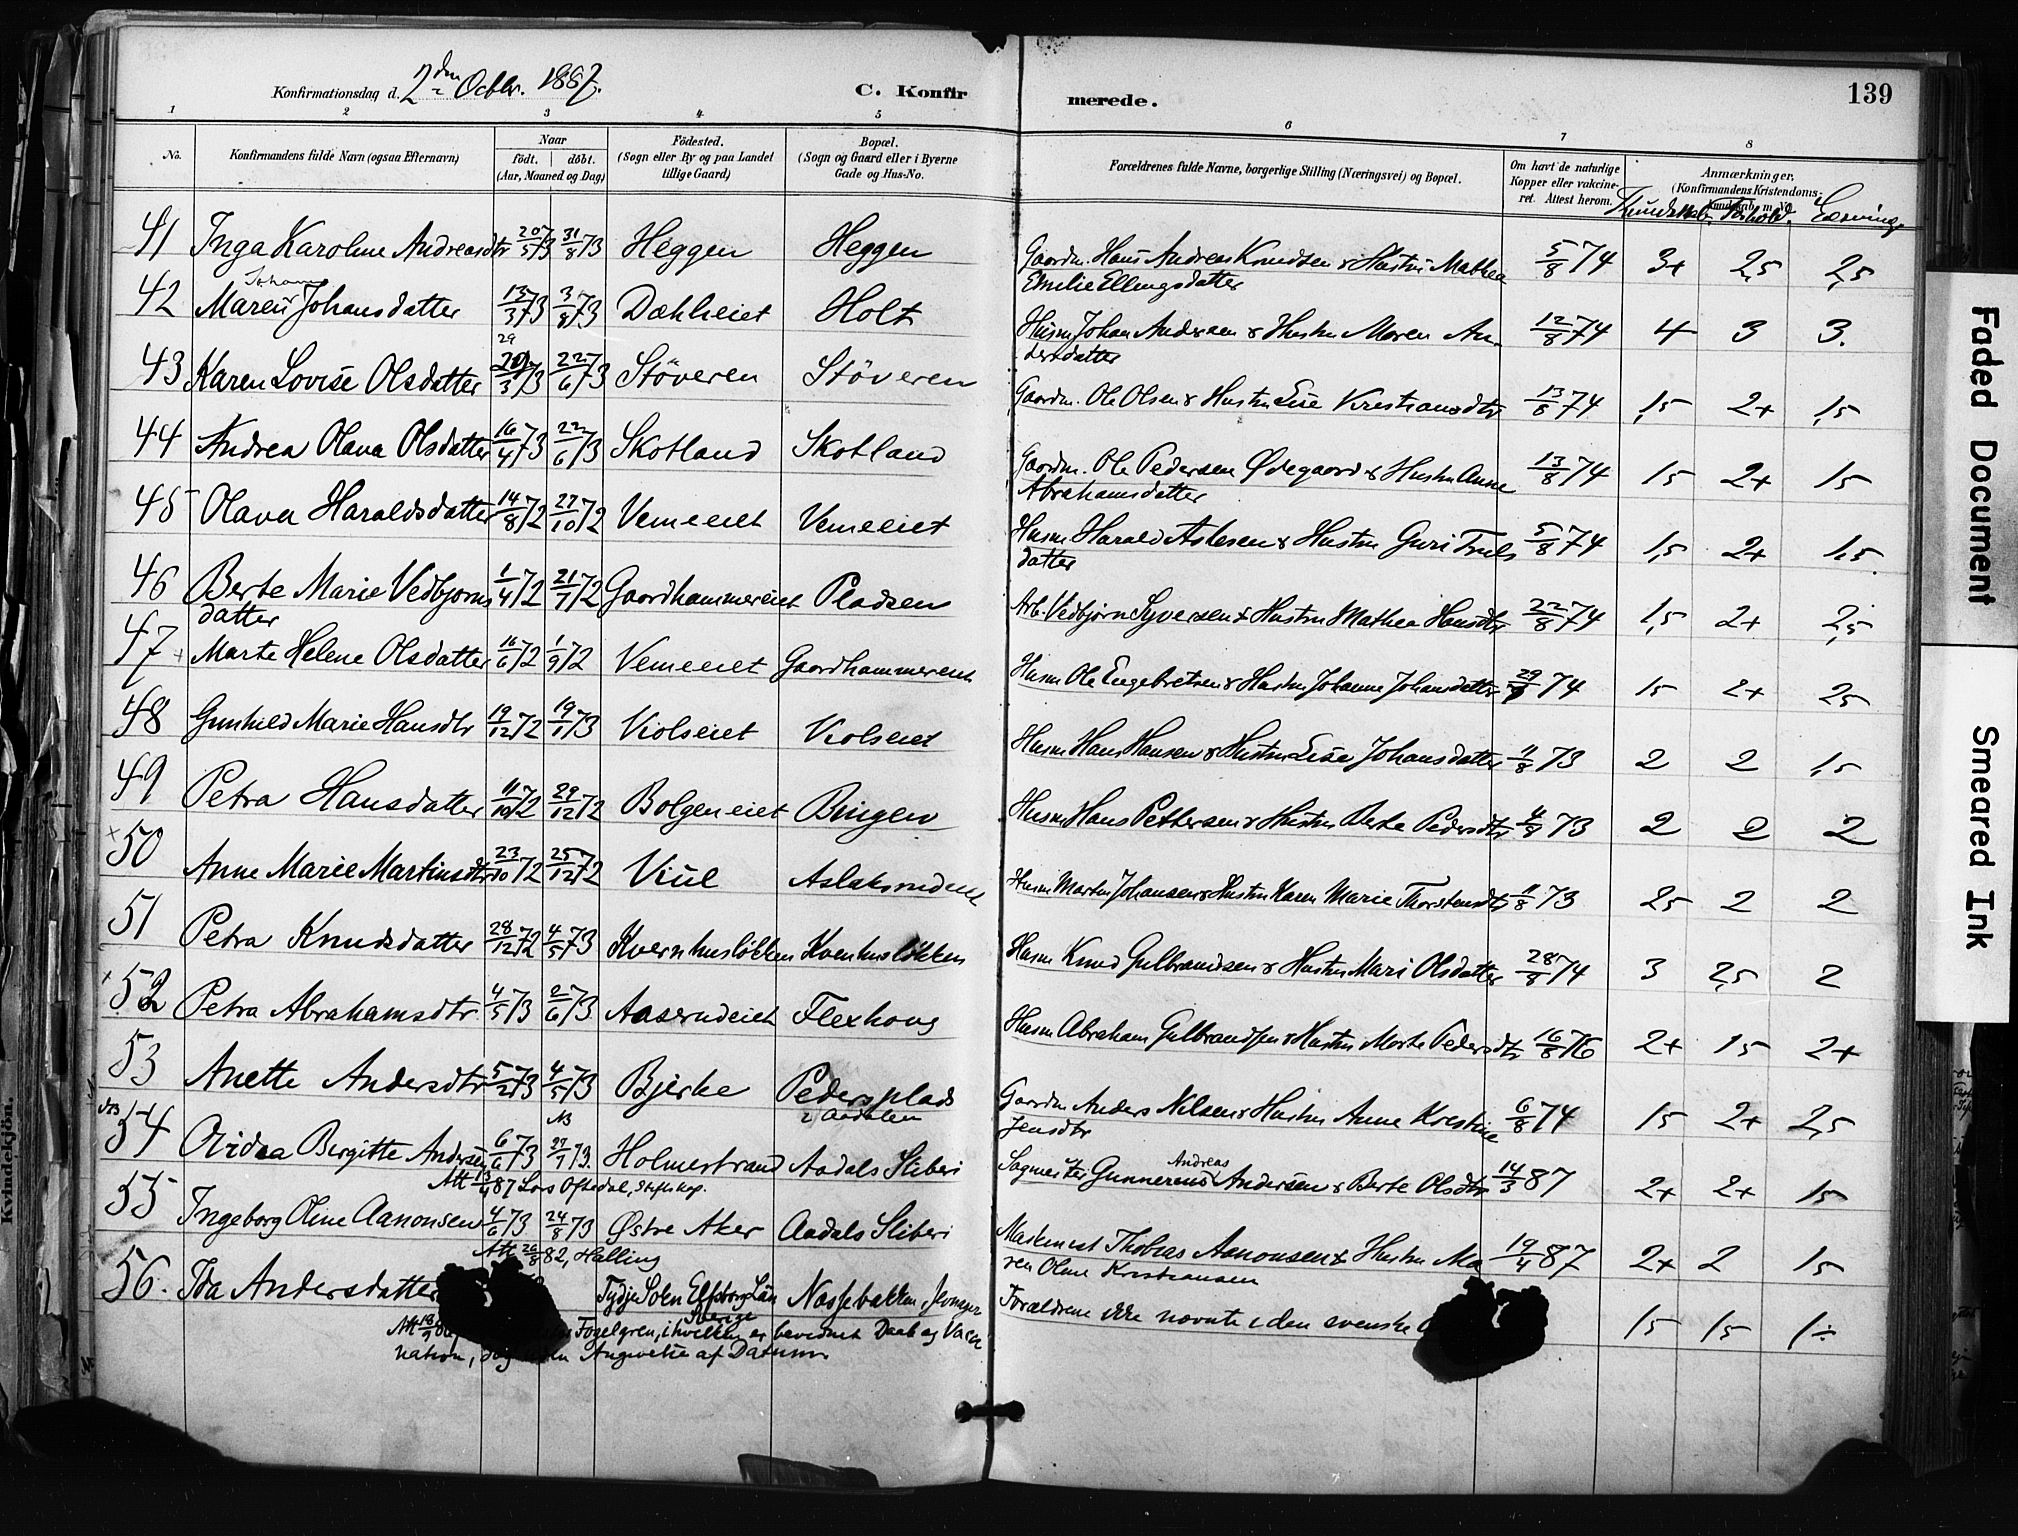 Konfirmationsdag d. 2den Octbr. 1887.
C. Konfirmerede.
139
1 2 3 4 5 6 7 8
No.
Konfirmandens fulde Navn (ogsaa Efternavn)
Naar
födt. döbt.
(Aar, Maaned og Dag)
Födested.
(Sogn eller By og paa Landet
tillige Gaard)
Bopæl.
(Sogn og Gaard eller i Byerne
Gade og Hus-No.
Forældrenes fulde Navne, borgerlige Stilling (Næringsvei) og Bopæl.
Om havt de naturlige
Kopper eller vakcine-
ret. Attest herom.
Anmærkninger,
(Konfirmandens Kristendoms-
Kundskab m. V.)
Kundskab. Forhold. Læsning.
41 Inga Karoline Andreasdtr 20/5 73 31/8 73 Heggen Heggen Gaardm. Hans Andreas Knudsen & Hustru Mathea 5/8 74 3+ 2,5 2,5
Emilie Ellingsdatter
Johanne
42 Maren Johansdatter 13/3 73 3/8 73 Dækheiet Holt Husm. Johan Andersen & Hustru Maren An- 12/8 74 4 3 3.
dersdatter
29
43 Karen Lovise Olsdatter 20/3 73 22/6 73 Störeren Störeren Gaardm. Ole Olsen & Hustru Lise Kristiansdtr 13/8 74 1,5 2+ 1,5
44 Andrea Olava Olsdatter 16/4 73 22/6 73 Skotland Skotland Gaardm. Ole Pedersen Ødegaard & Hustru Anne 13/8 74 15 2+ 15
Abrahamsdatter
45 Olava Haraldsdatter 14/8 72 27/10 72 Vemeeiet Vemeeiet Husm Harald Aslesen & Hustru Guri Truls 5/8 74 1,5 2+ 1,5.
datter
46 Berte Marie Vedbjorns 1/4 72 21/7 72 Gaardhammereiet Pladsen Arb. Vedbjørn Syversen & Hustru Mathea Hansdtr 22/8 74 1,5 2+ 2,5
datter
47 Marte Helene Olsdatter 16/6 72 1/9 72 Vemeeiet Gaardhammereiet Husm Ole Engebretsen & Hustru Johanne Johansdatter 29/8 74 15 2+ 25
48 Gunhild Marie Hansdtr 19/12 72 19/1 73 Violseiet Violseiet Husm Hans Hansen & Hustru Lise Johansdatter 11/8 73 2 2 1,5
49 Petra Hansdatter 11/10 72 29/12 72 Bolgeneiet Bingen Husm Hans Pettersen & Hustru Berte Pedersdtr 4/8 73 2 2 2
x
50 Anne Marie Martinsdtr 23/10 72 25/12 72 Viul Aslaksrudeiet Husm Martin Johansen & Hustru Karen Marie Thorstensdtr 11/8 73 25 2 2
51 Petra Knudsdatter 28/12 72 4/5 73 Kvernhusløkken Kvenhusløkken Husm Knud Gulbrandsen & Hustru Mari Olsdatter 28/8 74 3 2,5 2
52 Petra Abrahamsdtr 4/5 73 2/6 73 Aaserudeiet Flexhoug Husm Abraham Gulbrandsen & Hustru Marte Pedersdtr 16/8 76 2+ 15 2+
53 Anette Andersdtr 5/2 73 4/5 73 Bjerke Pedersplads Gaardm Anders Nilsen & Hustru Anne Kristine 6/8 74 15 2+ 2,5
i Aadalen
Jensdtr
NB
54 Ovidia Birgitte Andersen 6/6 73 27/7 73. Holmestrand Aadals Sliberi Sagmester Gunnerius Andreas Andersen & Berte Olsdtr 14/3 87 2+ 2+ 15
Att 13/4 87 Lars Oftedal, Stiftskap.
55 Ingeborg Oline Aanonsen 4/6 73 24/8 73 Østre Aker Aadals Sliberi Maskinist Thobias Aanonsen & Hustru Ma 19/4 87 2+ 2 15
ren Oline Kristiansen
Att 26/8 82, Halling
56. Ida Andersdatter Tydje Sokn Elfsborg Län Næssebakken, Jevnager Forældrene ikke nævnte i den svenske 15 15 1÷
Sverige
Att 13/9 Fogelgren, i hvilken er bevidnet Daab og Vacci
nation, Angivelse af Datum
Kvindekjön.
Faded Document
Smeared Ink